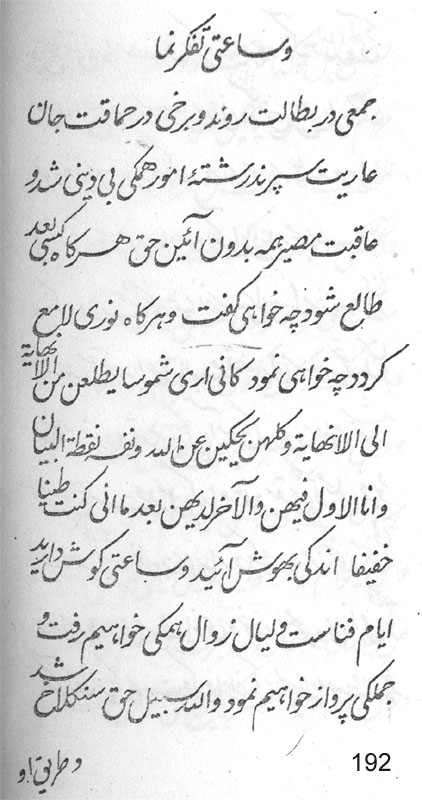 وساعتی تفکر نما
جمعی در بطالت روند و برخی در حماقت جان
عاریت سپرند رشتهٔ امور همکی بی دینی شد و
عاقبت مصیر همه بدون آئین حق هر کاه کسی بعد
طالع شود چه خواهی کفت وهر کاه نوری لامع
کردد چه خواهی نمود کانی اری شموسا یطلعن من اللانهایة
الی اللانهایة وکلهن یحکین عن الله ونفس نقطة البیان
وانا الاول فیهن والآخر لدیهن بعد ما انی کنت طینا
خفیفا اندکی بهوش آئید وساعتی کوش دارید
ایام فناست ولیال زوال همکی خواهیم رفت و
جملکی پرواز خواهیم نمود والله سبیل حق سنکلاخ شد
وطریق او
192